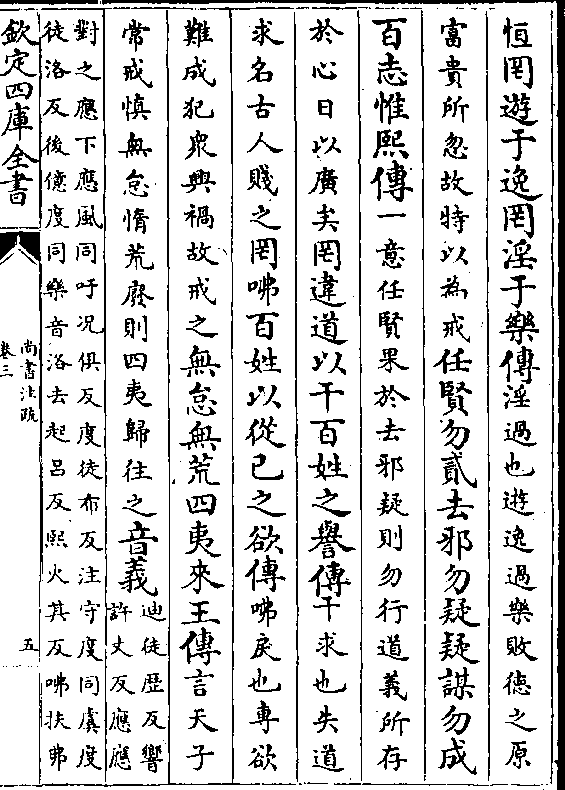 恒罔遊于逸罔淫于樂傳淫過也遊逸過樂敗德之原
富貴所忽故特以為戒任賢勿貳去邪勿疑疑謀勿成
百志惟熙傳一意任賢果於去邪疑則勿行道義所存
於心日以廣矣罔違道以干百姓之譽傳干求也失道
求名古人賤之罔咈百姓以從己之欲傳咈戾也專欲
難成犯衆興禍故戒之無怠無荒四夷來王傳言天子
常戒慎無怠惰荒廢則四夷歸往之音義
迪徒歴反響
許丈反應應
對之應下應風同吁况俱反度徒布反注守度同虞度
徒洛反後億度同樂音洛去起呂反熙火其反咈扶弗
欽定四庫全書
尚書注疏
卷三
五